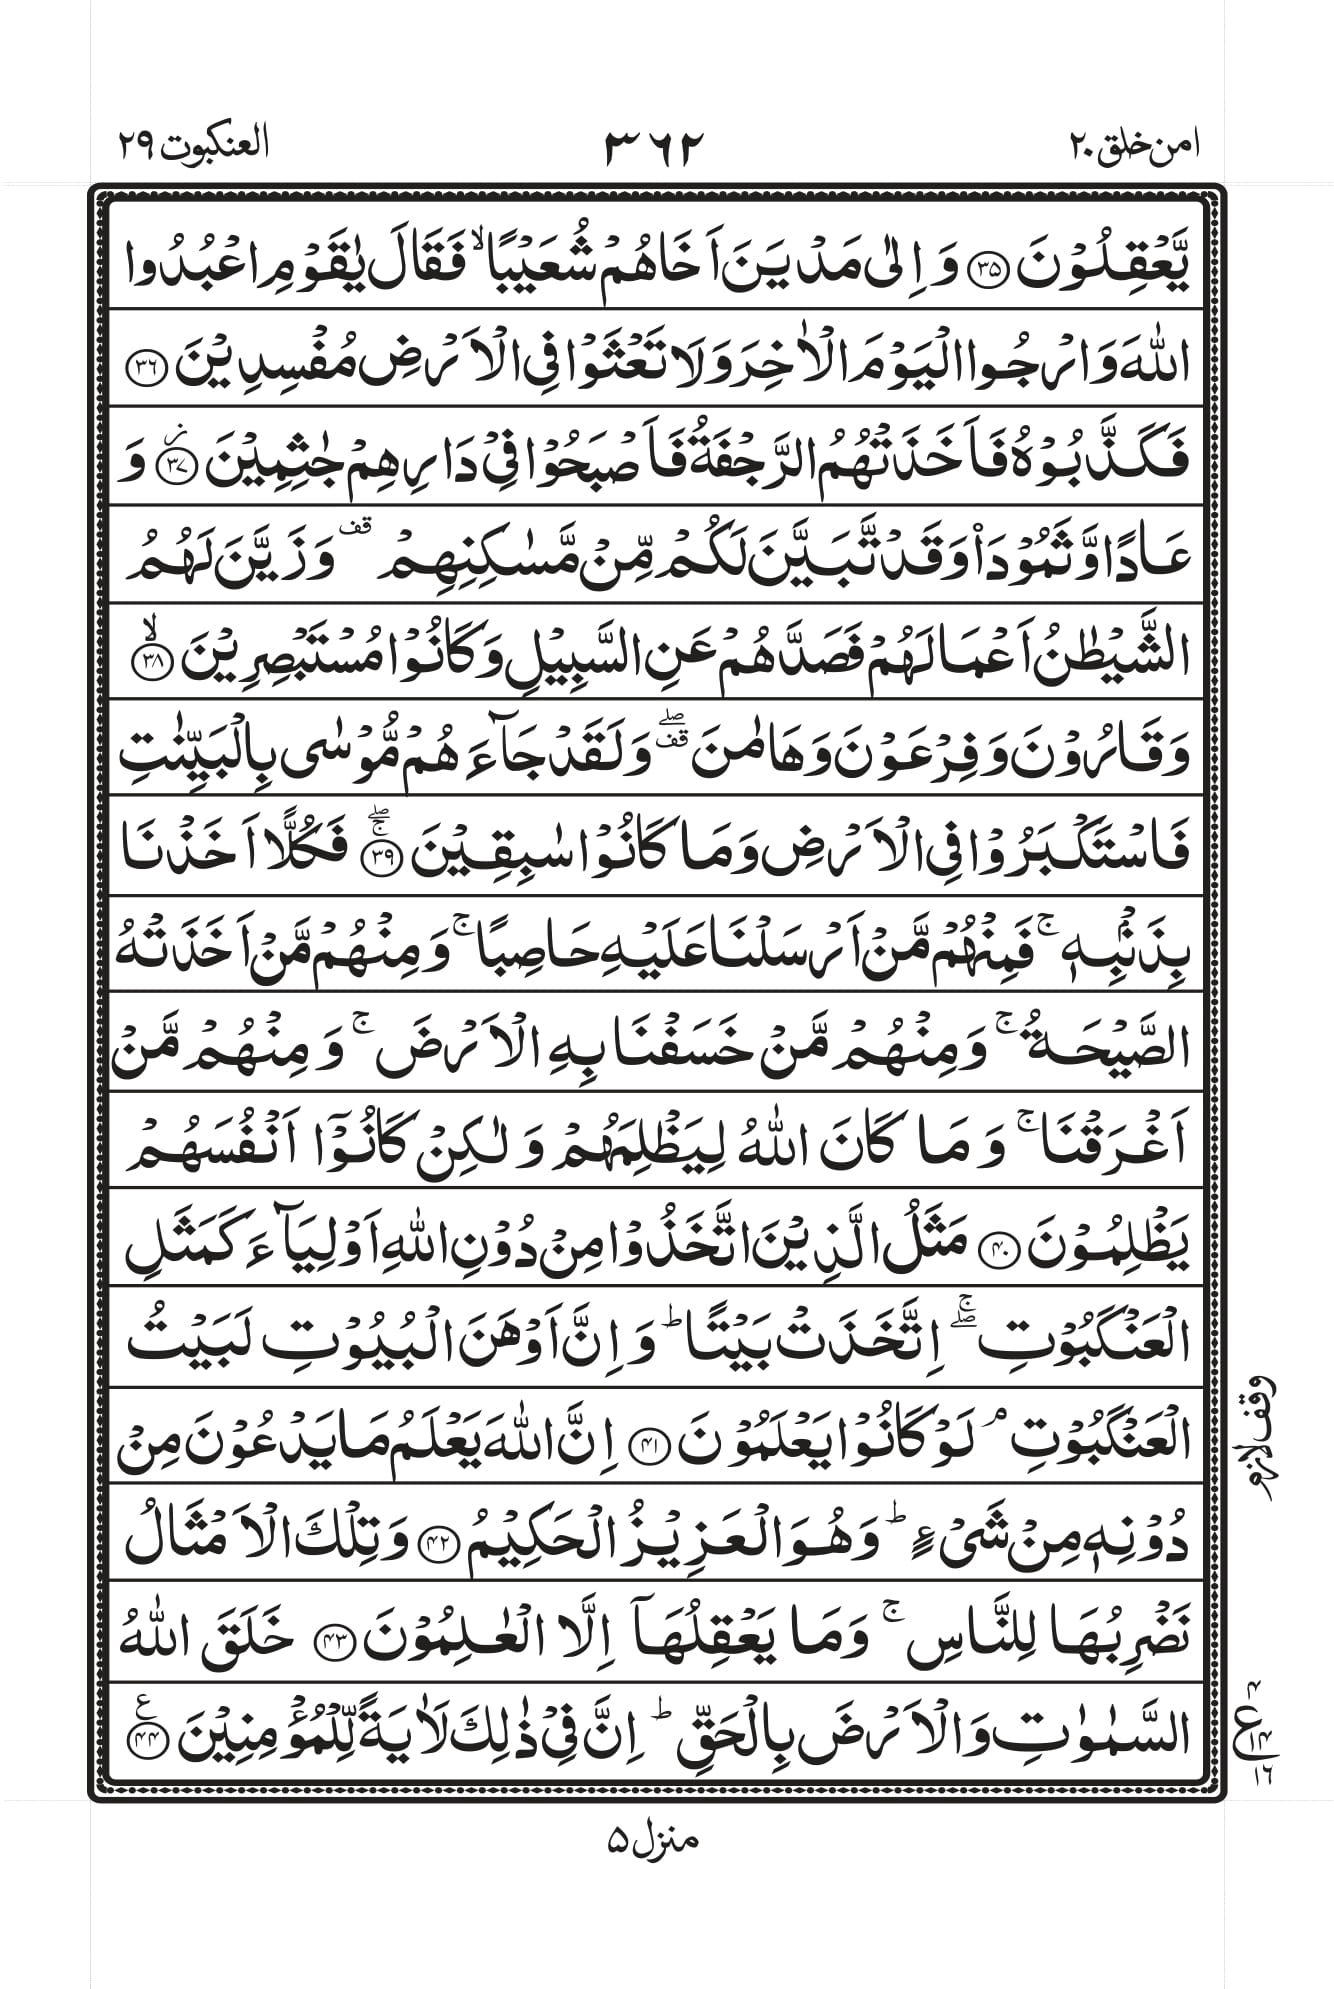 امن خلق ۲۰
۳۶۲
العنكبوت ۲۹
يَّعْقِلُوْنَ ۝۳۵ وَاِلٰى مَدْيَنَ اَخَاهُمْ شُعَيْبًا ۙ فَقَالَ يٰقَوْمِ اعْبُدُوا
اللّٰهَ وَارْجُوا الْيَوْمَ الْاٰخِرَ وَلَا تَعْثَوْا فِى الْاَرْضِ مُفْسِدِيْنَ ۝۳۶
فَكَذَّبُوْهُ فَاَخَذَتْهُمُ الرَّجْفَةُ فَاَصْبَحُوْا فِىْ دَارِهِمْ جٰثِمِيْنَ ۝۳۷ ز وَ
عَادًا وَّثَمُوْدَا۟ وَقَدْ تَّبَيَّنَ لَكُمْ مِّنْ مَّسٰكِنِهِمْ قف وَزَيَّنَ لَهُمُ
الشَّيْطٰنُ اَعْمَالَهُمْ فَصَدَّهُمْ عَنِ السَّبِيْلِ وَكَانُوْا مُسْتَبْصِرِيْنَ ۝۳۸ ۙ
وَقَارُوْنَ وَفِرْعَوْنَ وَهَامٰنَ ۖ قف وَلَقَدْ جَآءَهُمْ مُّوْسٰى بِالْبَيِّنٰتِ
فَاسْتَكْبَرُوْا فِى الْاَرْضِ وَمَا كَانُوْا سٰبِقِيْنَ ۝۳۹ ۖۚ فَكُلًّا اَخَذْنَا
بِذَنْۢبِهٖ ۚ فَمِنْهُمْ مَّنْ اَرْسَلْنَا عَلَيْهِ حَاصِبًا ۚ وَمِنْهُمْ مَّنْ اَخَذَتْهُ
الصَّيْحَةُ ۚ وَمِنْهُمْ مَّنْ خَسَفْنَا بِهِ الْاَرْضَ ۚ وَمِنْهُمْ مَّنْ
اَغْرَقْنَا ۚ وَمَا كَانَ اللّٰهُ لِيَظْلِمَهُمْ وَلٰكِنْ كَانُوْٓا اَنْفُسَهُمْ
يَظْلِمُوْنَ ۝۴۰ مَثَلُ الَّذِيْنَ اتَّخَذُوْا مِنْ دُوْنِ اللّٰهِ اَوْلِيَآءَ كَمَثَلِ
الْعَنْكَبُوْتِ ۖۚ اِتَّخَذَتْ بَيْتًا ؕ وَاِنَّ اَوْهَنَ الْبُيُوْتِ لَبَيْتُ
الْعَنْكَبُوْتِ ۘ لَوْ كَانُوْا يَعْلَمُوْنَ ۝۴۱ اِنَّ اللّٰهَ يَعْلَمُ مَا يَدْعُوْنَ مِنْ
وقف لازم
دُوْنِهٖ مِنْ شَىْءٍ ؕ وَهُوَ الْعَزِيْزُ الْحَكِيْمُ ۝۴۲ وَتِلْكَ الْاَمْثَالُ
نَضْرِبُهَا لِلنَّاسِ ۚ وَمَا يَعْقِلُهَآ اِلَّا الْعٰلِمُوْنَ ۝۴۳ خَلَقَ اللّٰهُ
السَّمٰوٰتِ وَالْاَرْضَ بِالْحَقِّ ؕ اِنَّ فِىْ ذٰلِكَ لَاٰيَةً لِّلْمُؤْمِنِيْنَ ۝۴۴ ع
۴
ع ۱۴
۱۶
منزل ۵